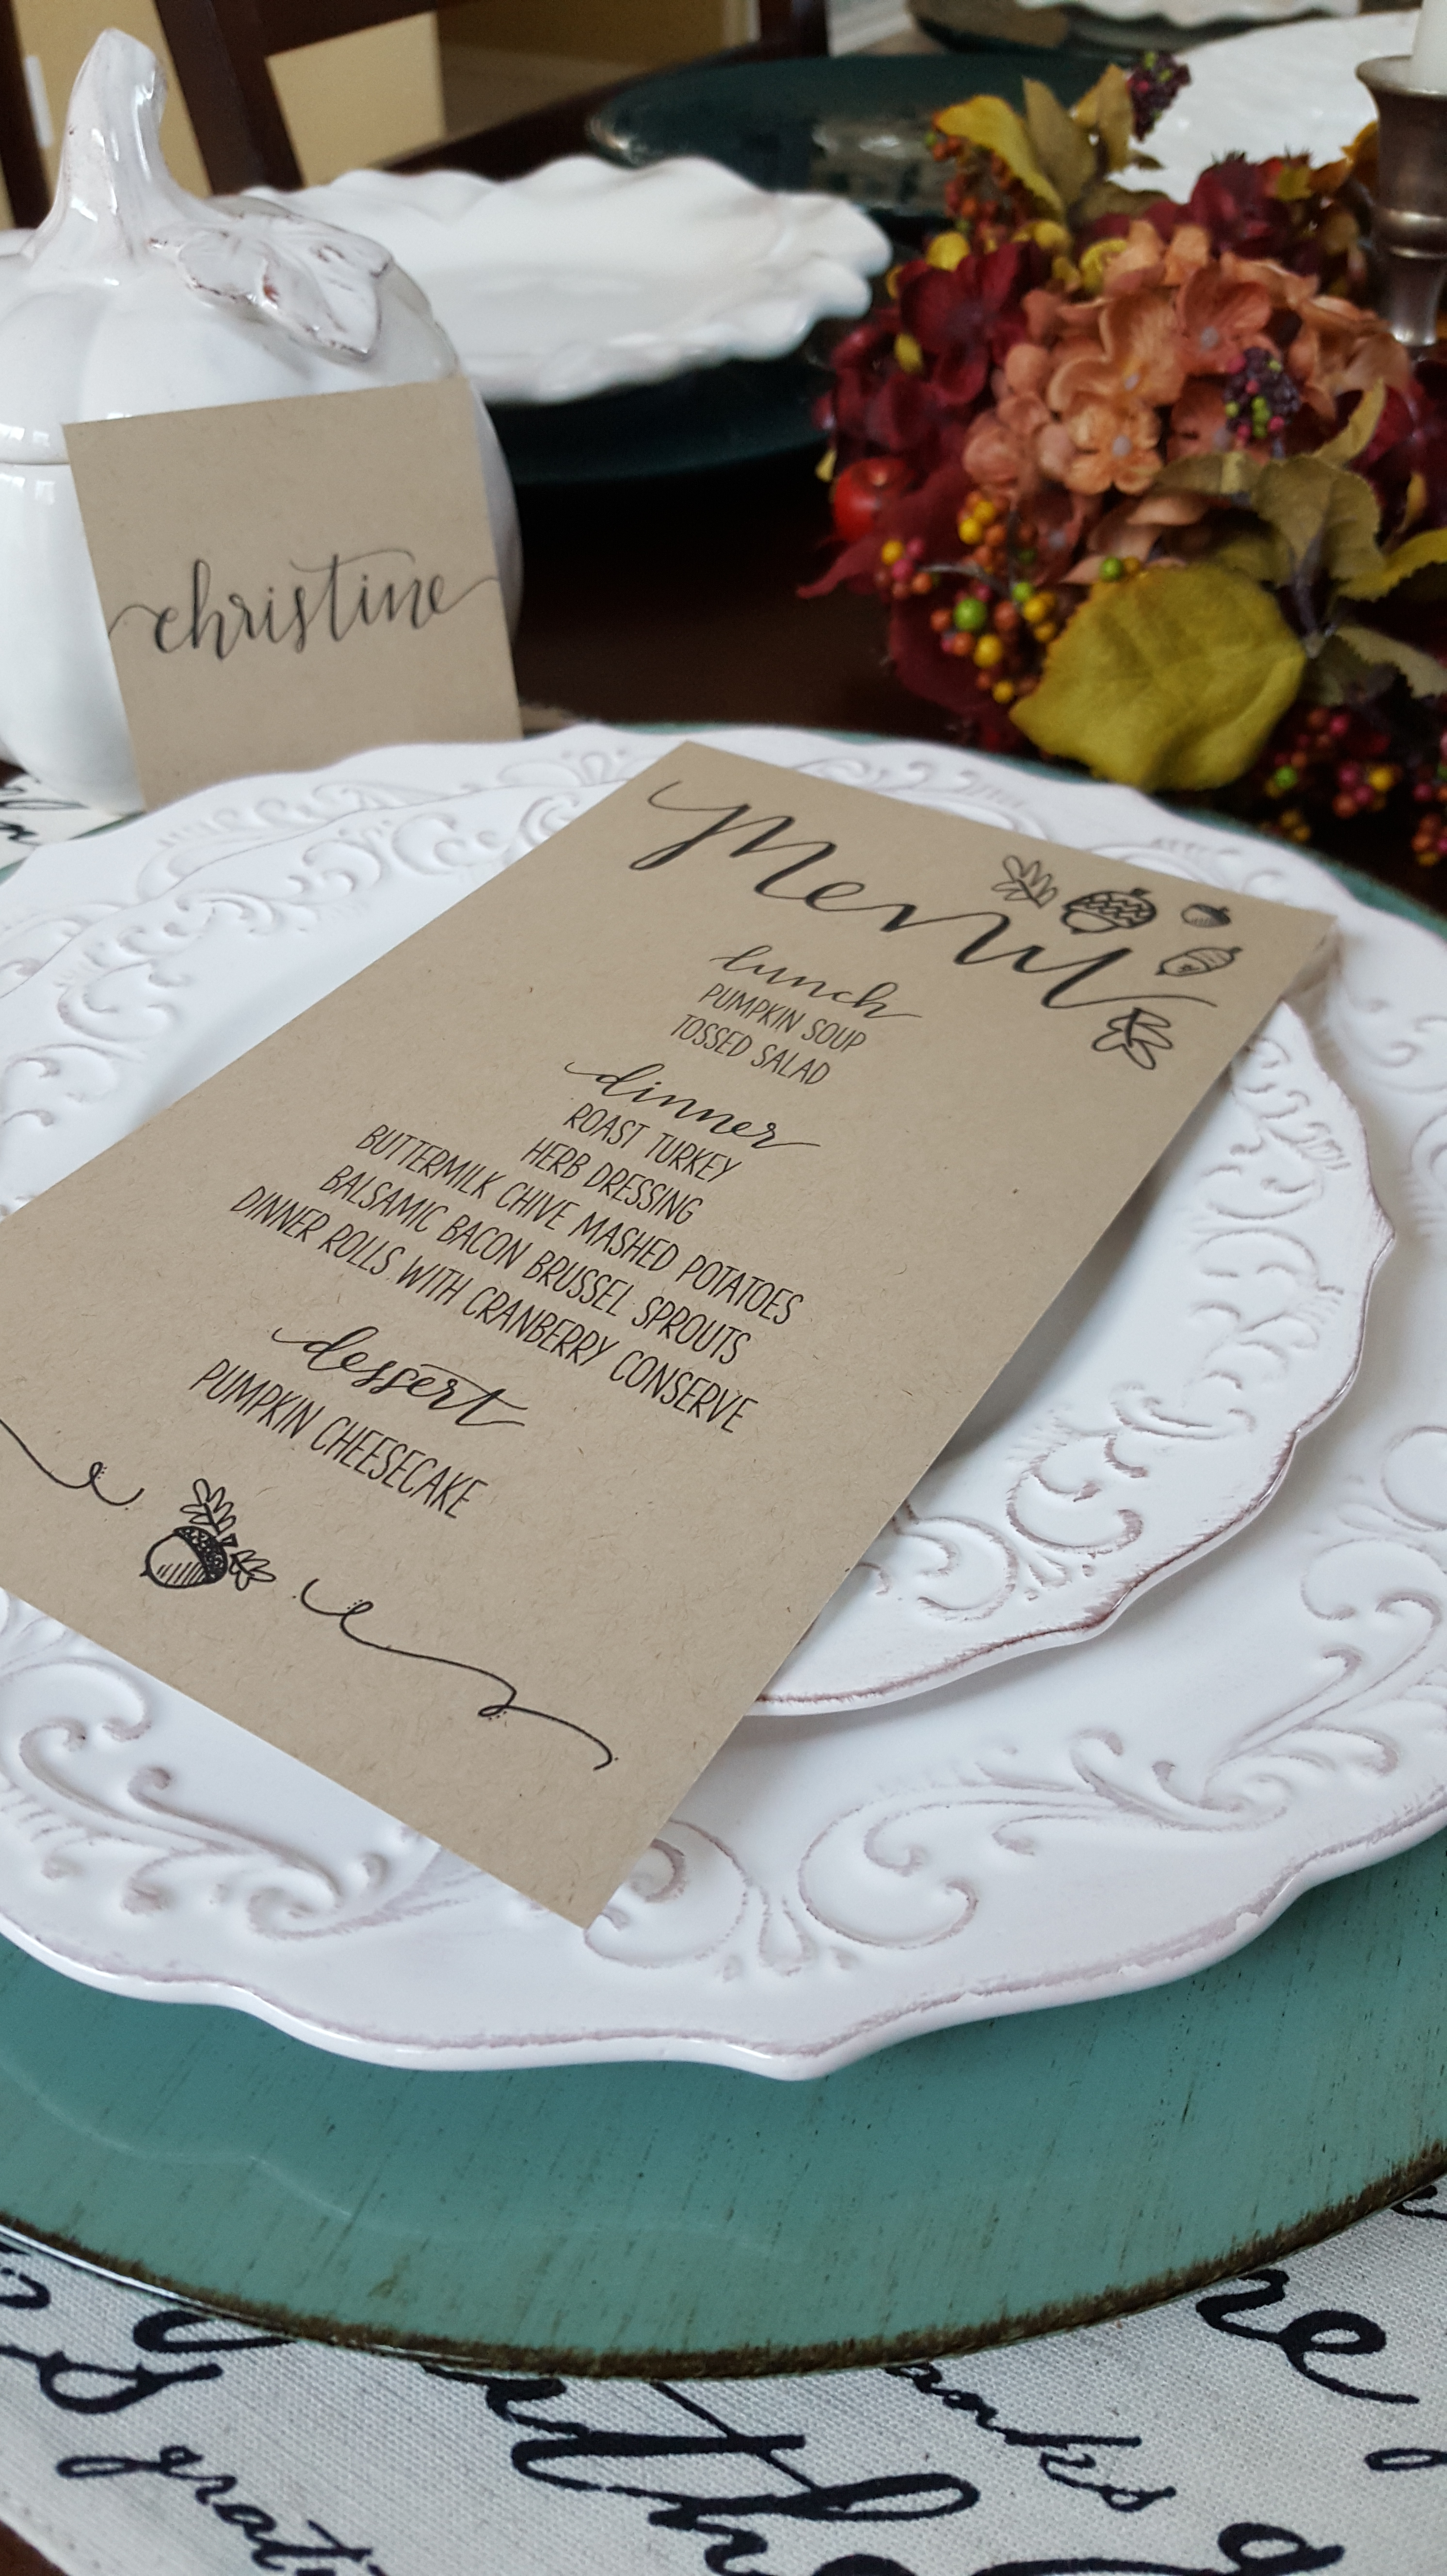 christine
Menu
lunch
PUMPKIN SOUP
TOSSED SALAD
dinner
ROAST TURKEY
HERB DRESSING
BUTTERMILK CHIVE MASHED POTATOES
BALSAMIC BACON BRUSSEL SPROUTS
DINNER ROLLS WITH CRANBERRY CONSERVE
dessert
PUMPKIN CHEESECAKE